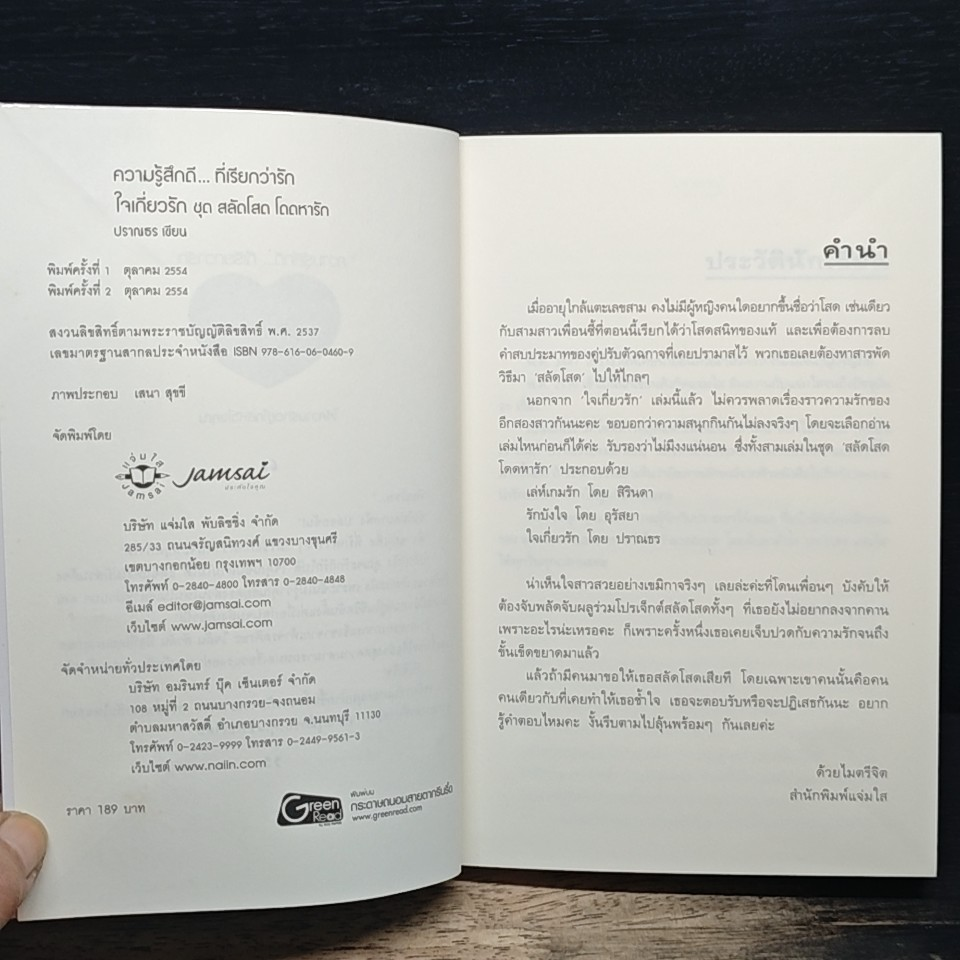 ความรู้สึกดี... ที่เรียกว่ารัก
ใจเกี่ยวรัก ชุด สลัดโสด โดดหารัก
ปราณธร เขียน
พิมพ์ครั้งที่ 1 ตุลาคม 2554
พิมพ์ครั้งที่ 2 ตุลาคม 2554
สงวนลิขสิทธิ์ตามพระราชบัญญัติลิขสิทธิ์ พ.ศ. 2537
เลขมาตรฐานสากลประจำหนังสือ ISBN 978-616-06-0460-9
ภาพประกอบ เสนา สุขขี
จัดพิมพ์โดย
แจ่มใส
Jamsai
Jamsai
บริษัท แจ่มใส พับลิชชิ่ง จำกัด
285/33 ถนนจรัญสนิทวงศ์ แขวงบางขุนศรี
เขตบางกอกน้อย กรุงเทพฯ 10700
โทรศัพท์ 0-2840-4800 โทรสาร 0-2840-4848
อีเมล์ editor@jamsai.com
เว็บไซต์ www.jamsai.com
จัดจำหน่ายทั่วประเทศโดย
บริษัท อมรินทร์ บุ๊ค เซ็นเตอร์ จำกัด
108 หมู่ที่ 2 ถนนบางกรวย-จงถนอม
ตำบลมหาสวัสดิ์ อำเภอบางกรวย จ.นนทบุรี 11130
โทรศัพท์ 0-2423-9999 โทรสาร 0-2449-9561-3
เว็บไซต์ www.naiin.com
ราคา 189 บาท
Green Read
พิมพ์บน
กระดาษถนอมสายตากรีนรี้ด
www.greenread.com
คำนำ
เมื่ออายุใกล้แตะเลขสาม คงไม่มีผู้หญิงคนใดอยากขึ้นชื่อว่าโสด เช่นเดียว
กับสามสาวเพื่อนซี้ที่ตอนนี้เรียกได้ว่าโสดสนิทของแท้ และเพื่อต้องการลบ
คำสบประมาทของคู่ปรับตัวฉกาจที่เคยปรามาสไว้ พวกเธอเลยต้องหาสารพัด
วิธีมา ‘สลัดโสด’ ไปให้ไกลๆ
นอกจาก ‘ใจเกี่ยวรัก’ เล่มนี้แล้ว ไม่ควรพลาดเรื่องราวความรักของ
อีกสองสาวกันนะคะ ขอบอกว่าความสนุกกินกันไม่ลงจริงๆ โดยจะเลือกอ่าน
เล่มไหนก่อนก็ได้ค่ะ รับรองว่าไม่มีงงแน่นอน ซึ่งทั้งสามเล่มในชุด ‘สลัดโสด
โดดหารัก’ ประกอบด้วย
เล่ห์เกมรัก โดย สิรินดา
รักบังใจ โดย อุรัสยา
ใจเกี่ยวรัก โดย ปราณธร
น่าเห็นใจสาวสวยอย่างเขมิกาจริงๆ เลยล่ะค่ะที่โดนเพื่อนๆ บังคับให้
ต้องจับพลัดจับผลูร่วมโปรเจ็กต์สลัดโสดทั้งๆ ที่เธอยังไม่อยากลงจากคาน
เพราะอะไรน่ะเหรอคะ ก็เพราะครั้งหนึ่งเธอเคยเจ็บปวดกับความรักจนถึง
ขั้นเข็ดขยาดมาแล้ว
แล้วถ้ามีคนมาขอให้เธอสลัดโสดเสียที โดยเฉพาะเขาคนนั้นคือคน
คนเดียวกับที่เคยทำให้เธอช้ำใจ เธอจะตอบรับหรือจะปฏิเสธกันนะ อยาก
รู้คำตอบไหมคะ งั้นรีบตามไปลุ้นพร้อมๆ กันเลยค่ะ
ด้วยไมตรีจิต
สำนักพิมพ์แจ่มใส